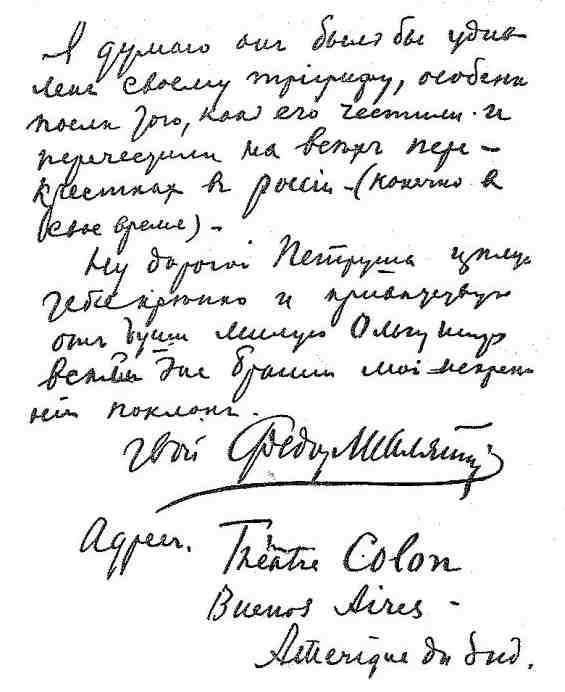 Я думаю онъ былъ бы удив-
ленъ своему тріумфу, особенн
послѣ того, какъ его честили и
перечестили на всѣхъ пере-
кресткахъ въ россіи – (конечно в
свое время) –
Ну дорогой Петруша цѣлую
тебя крѣпко и привѣтствую
отъ души милую Ольгу
всѣмъ мой искрен
ній поклонъ.
твой Федор Шаляпин
Адресъ. Théâtre Colon
Buenos Aires –
Amerique du Sud.